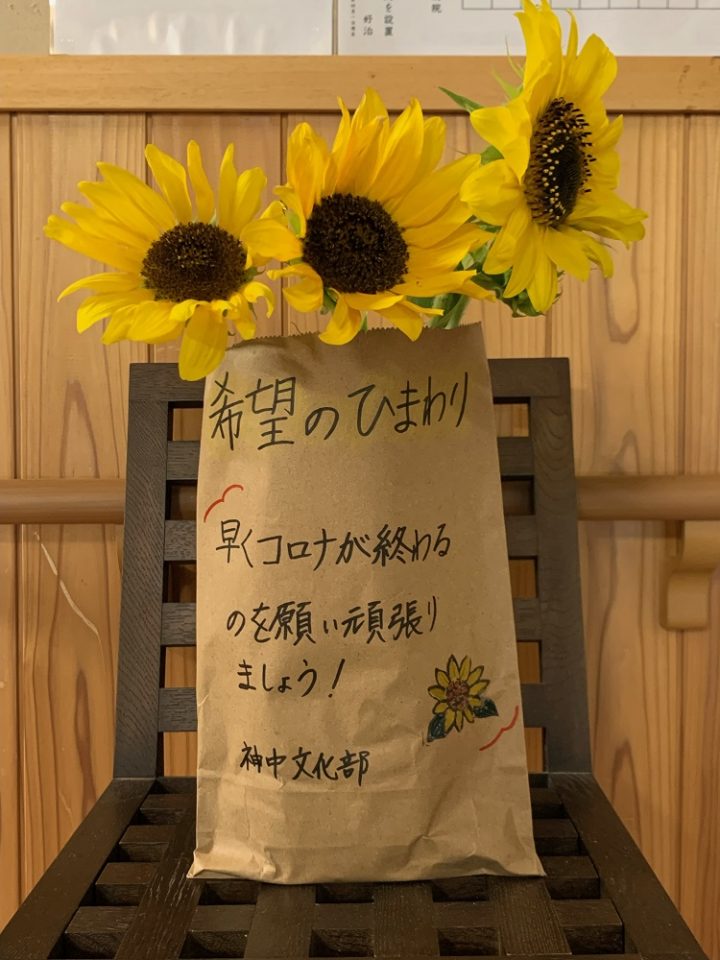 院
を設置
好治
希望のひまわり
早くコロナが終わる
のを願い頑張り
ましょう！
神中文化部